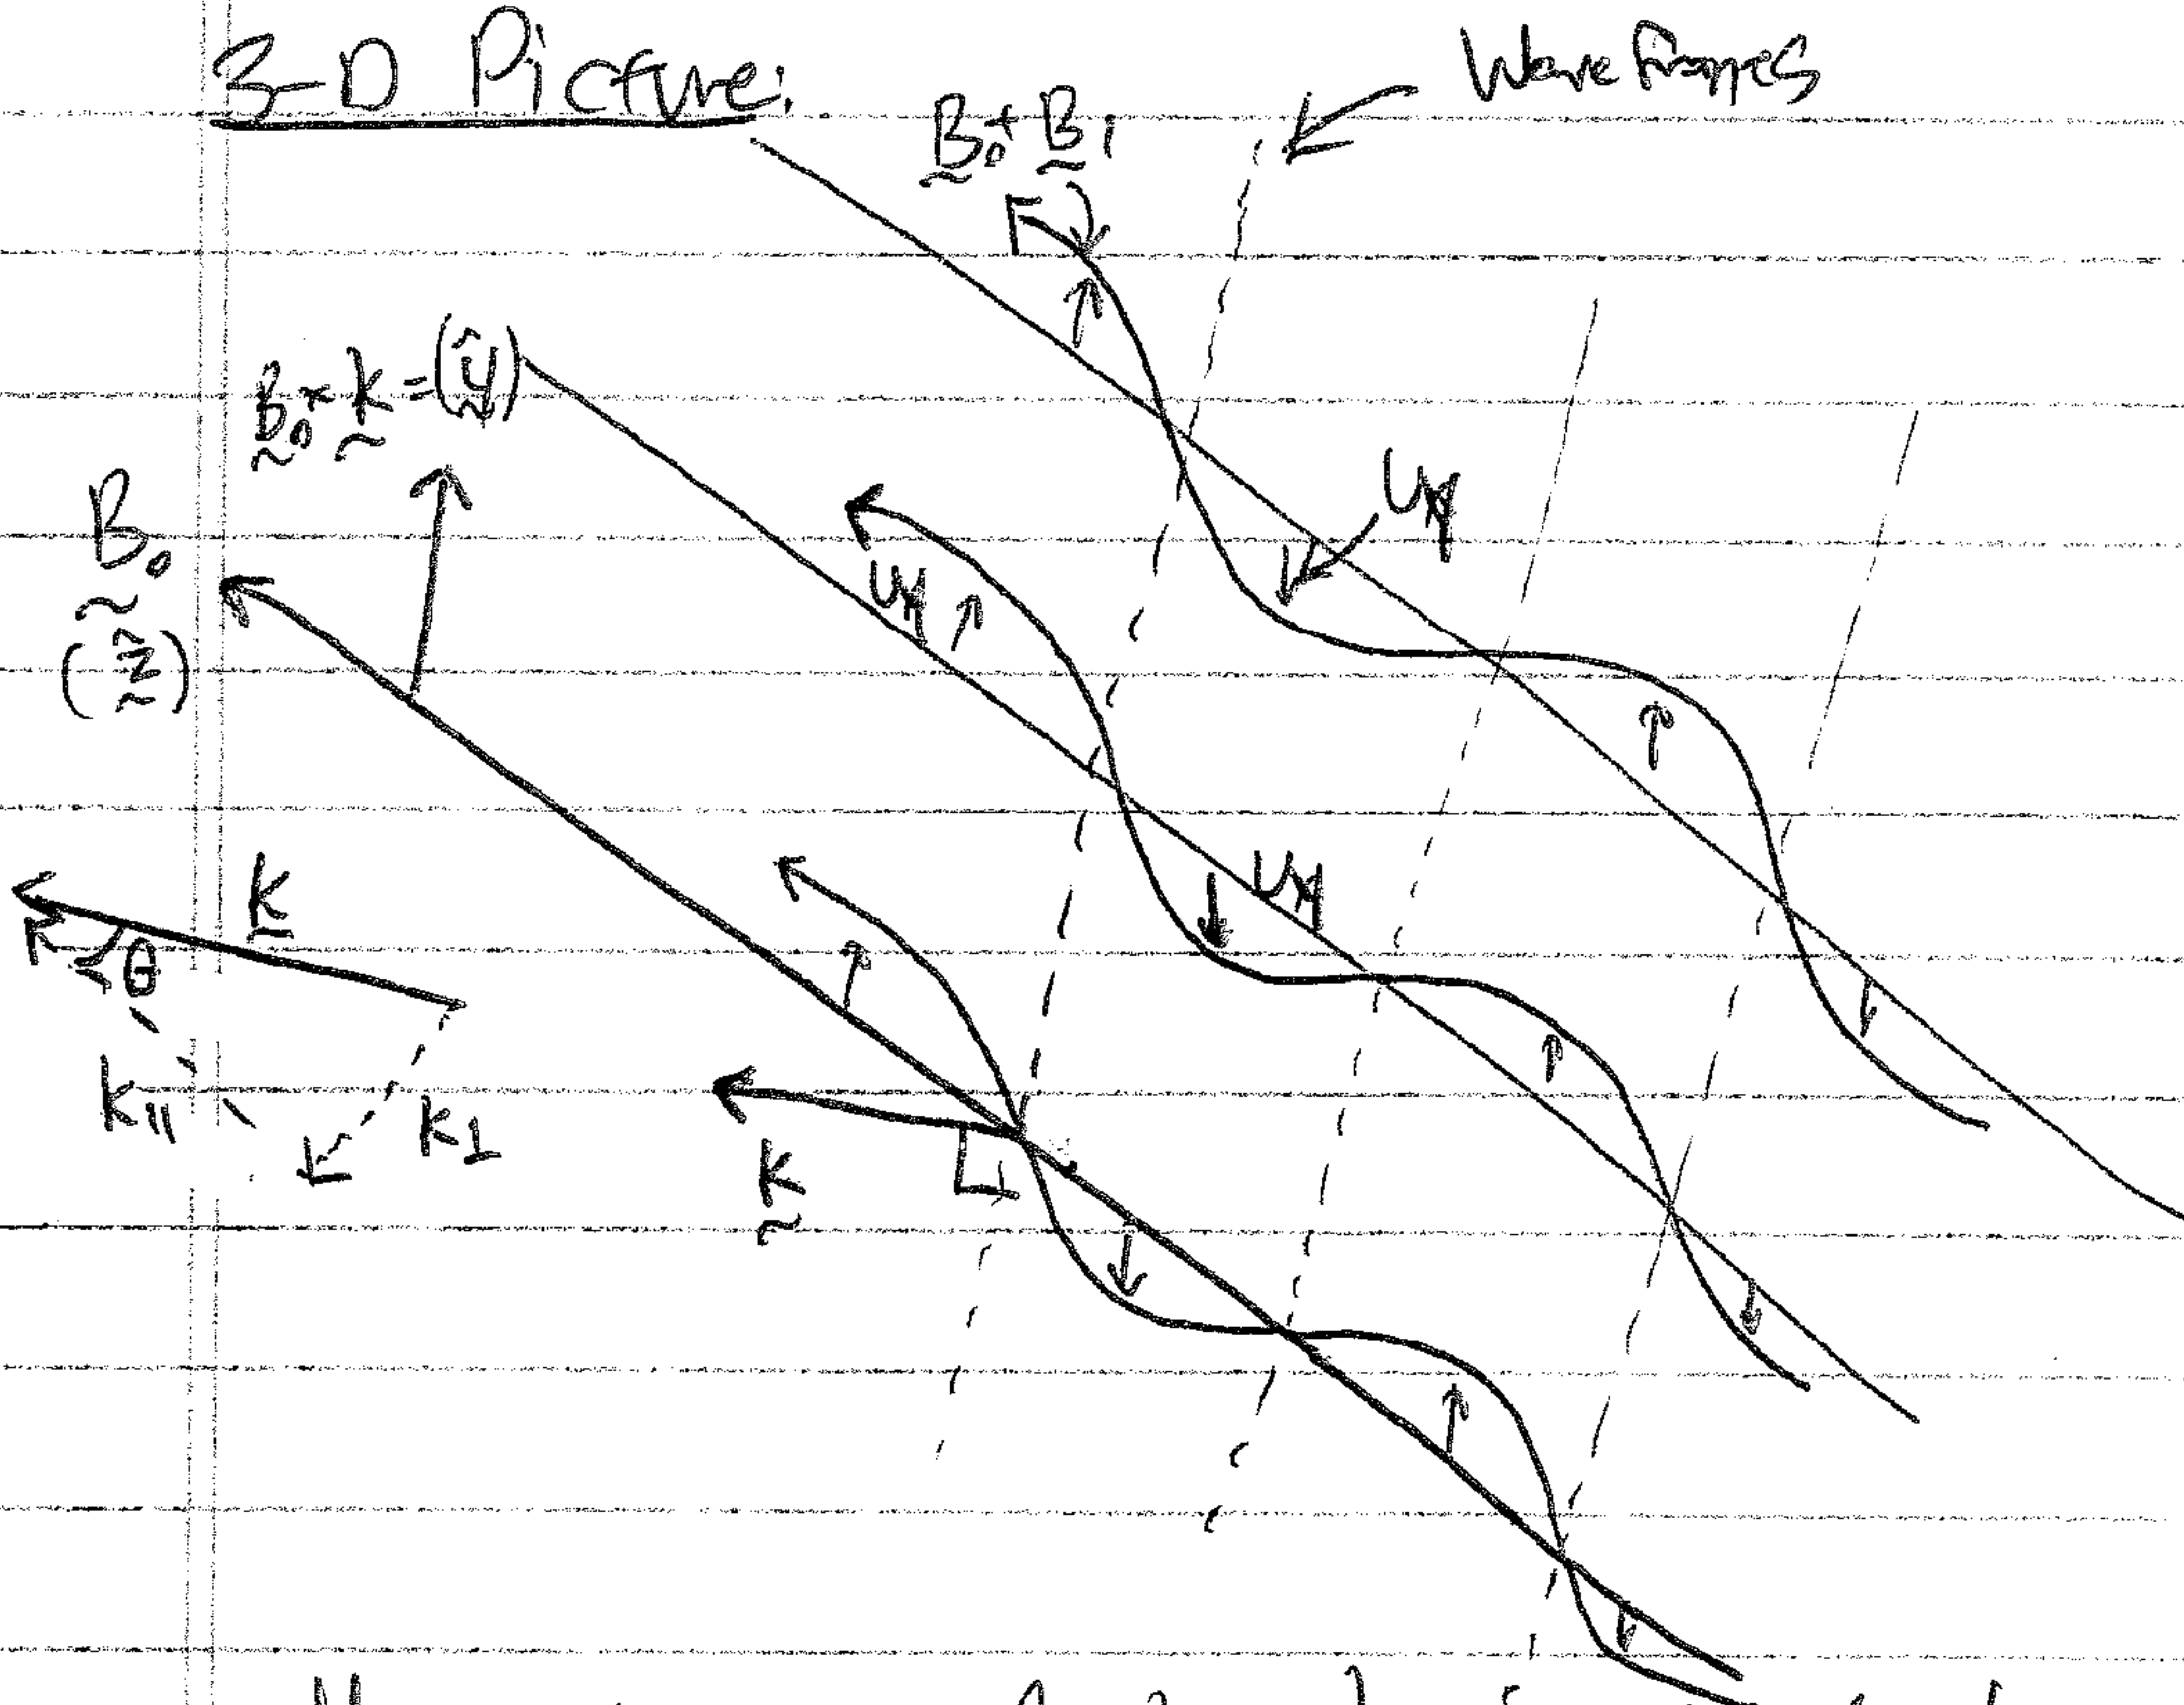 3-D Picture:
Wave Frames
B₀ + B₁
B₀ × k = (ŷ)
B₀
(ẑ)
u_y
u_y
u_y
k
θ
k_∥
k_⊥
k